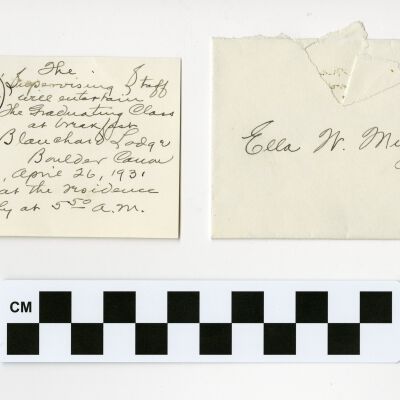 The
Supervising Staff
will entertain
The Graduating Class
at breakfast
Blanchard Lodge
Boulder Canon
, April 26, 1931
at the residence
at 5 50 A.M.
Ella W. 
CM